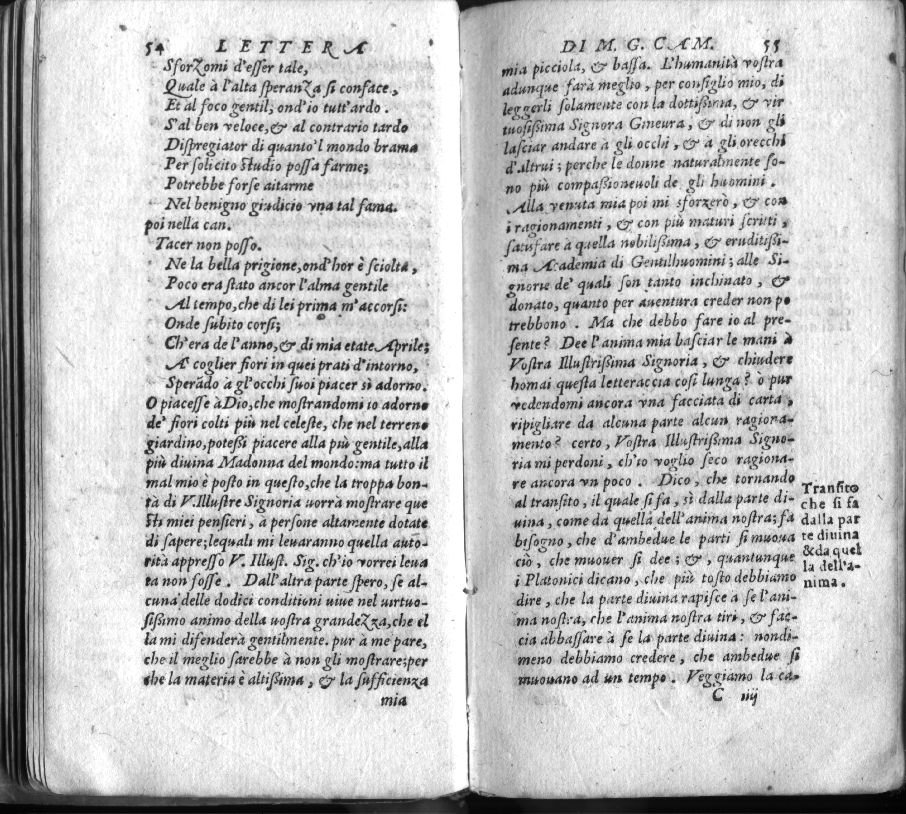 54 LETTERA
Sforzomi d'esser tale,
Quale à l'alta speranza si conface,
Et al foco gentil, ond'io tutt'ardo.
S'al ben veloce, & al contrario tardo
Dispregiator di quanto'l mondo brama
Per solicito studio possa farme;
Potrebbe forse aitarme
Nel benigno giudicio vna tal fama.
poi nella can.
Tacer non posso.
Ne la bella prigione, ond'hor è sciolta,
Poco era stato ancor l'alma gentile
Al tempo, che di lei prima m'accorsi:
Onde subito corsi;
Ch'era de l'anno, & di mia etate Aprile;
A' coglier fiori in quei prati d'intorno,
Sperãdo à gl'occhi suoi piacer sì adorno.
O piacesse à Dio, che mostrandomi io adorno
de' fiori colti più nel celeste, che nel terreno
giardino, potessi piacere alla più gentile, alla
più diuina Madonna del mondo: ma tutto il
mal mio è posto in questo, che la troppa bon-
tà di V. Illustre Signoria uorrà mostrare que
sti miei pensieri, à persone altamente dotate
di sapere; lequali mi leuaranno quella auto-
rità appresso V. Illust. Sig. ch'io vorrei leua
ta non fosse. Dall'altra parte spero, se al-
cuna delle dodici conditioni uiue nel uirtuo-
sissimo animo della uostra grandezza, che el
la mi difenderà gentilmente. pur à me pare,
che il meglio sarebbe à non gli mostrare; per
che la materia è altissima, & la sufficienza
mia
DI M. G. CAM. 55
mia picciola, & bassa. L'humanità vostra
adunque farà meglio, per consiglio mio, di
leggerli solamente con la dottissima, & vir
tuosissima Signora Gineura, & di non gli
lasciar andare à gli occhi, & à gli orecchi
d'Altrui; perche le donne naturalmente so-
no più compassioneuoli de gli huomini.
Alla venuta mia poi mi sforzerò, & con
i ragionamenti, & con più maturi scritti,
satisfare à quella nobilissima, & eruditissi-
ma Academia di Gentilhuomini; alle Si-
gnorie de' quali son tanto inchinato, &
donato, quanto per auentura creder non po
trebbono. Ma che debbo fare io al pre-
sente? Dee l'anima mia basciar le mani à
Vostra Illustrissima Signoria, & chiudere
homai questa letteraccia così lunga? ò pur
vedendomi ancora vna facciata di carta,
ripigliare da alcuna parte alcun ragiona-
mento? certo, Vostra Illustrissima Signo-
ria mi perdoni, ch'io voglio seco ragiona-
re ancora vn poco. Dico, che tornando
al transito, il quale si fa, sì dalla parte di-
uina, come da quella dell'anima nostra; fa
bisogno, che d'ambedue le parti si muoua
ciò, che muouer si dee; &, quantunque
i Platonici dicano, che più tosto debbiamo
dire, che la parte diuina rapisce a se l'ani-
ma nostra, che l'anima nostra tiri, & fac-
cia abbassare à se la parte diuina: nondi-
meno debbiamo credere, che ambedue si
muouano ad un tempo. Veggiamo la ca-
C iiij
Transito
che si fa
dalla par
te diuina
& da quel
la dell'a-
nima.